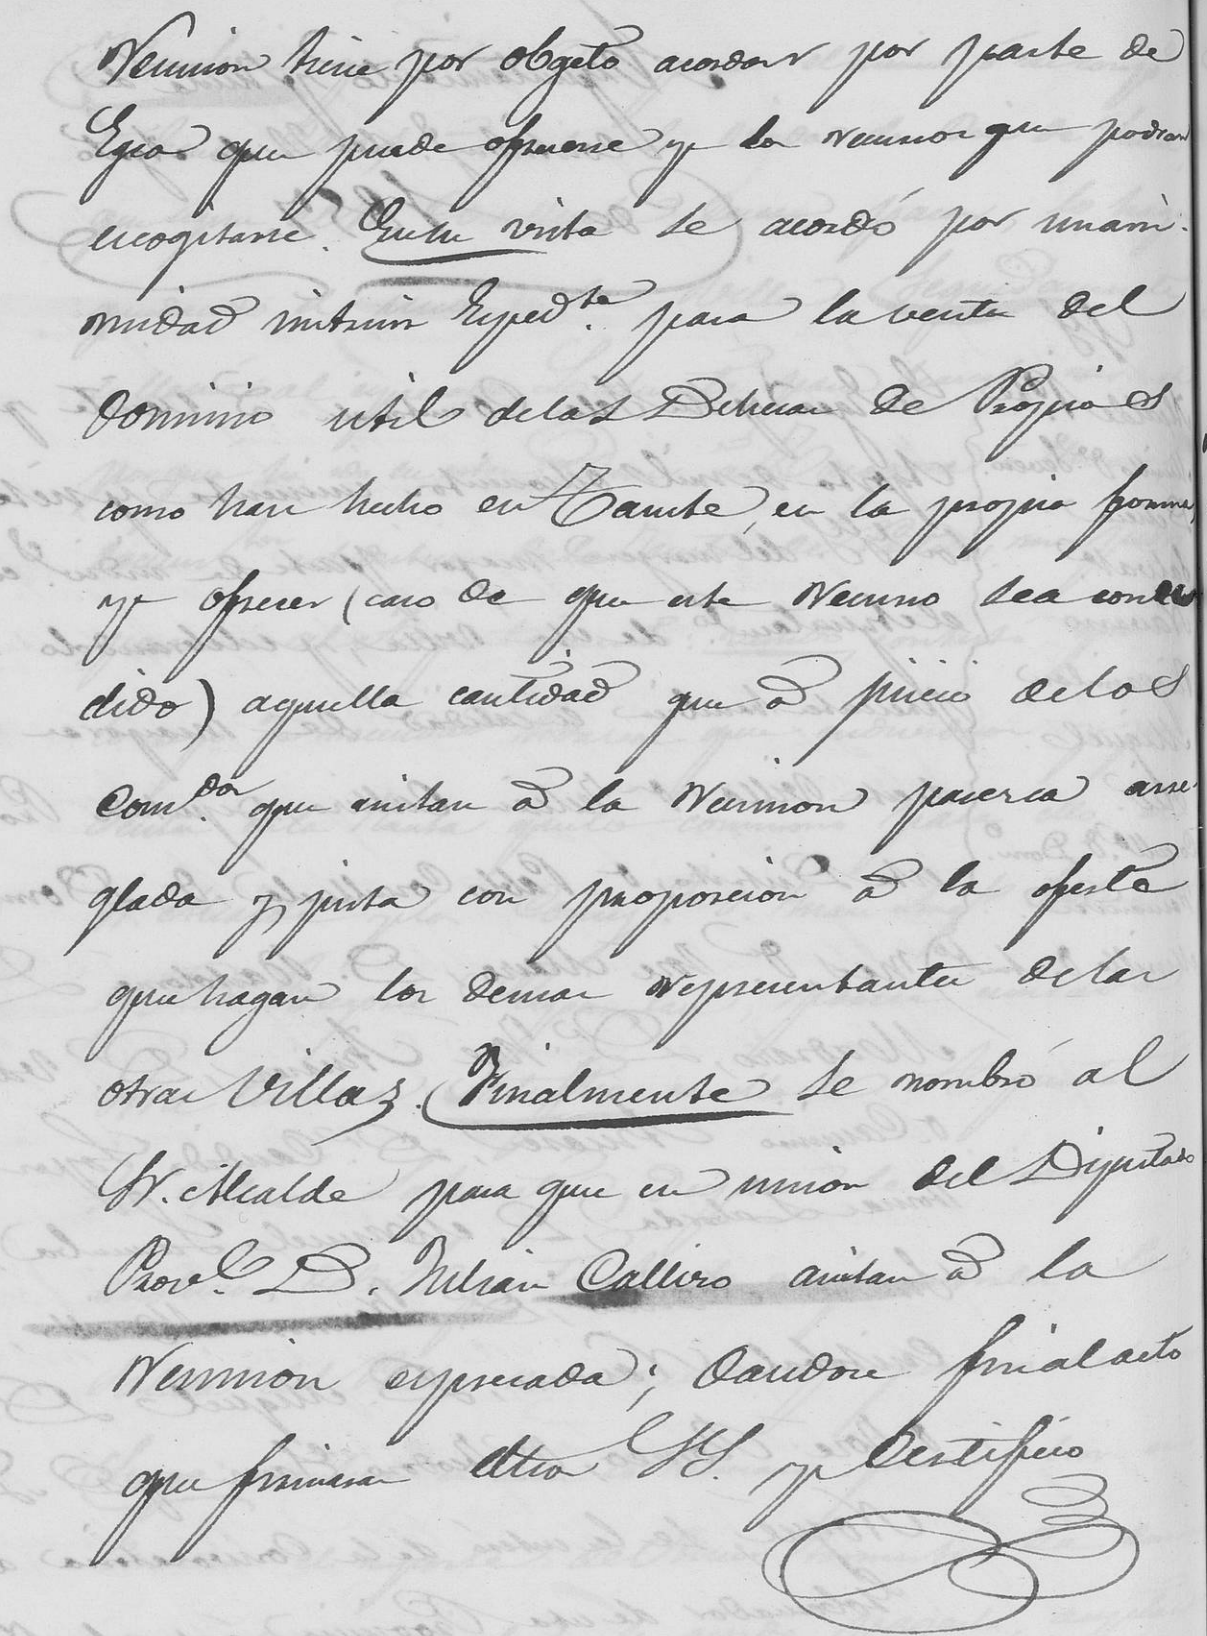 Reunion tiene por obgeto acordar por parte de
Egea que puede ofrecerse y los recursos que podran
escogitarse. En su vista se acordó por unani-
midad instruir Exped.te para la venta del
dominio util de las Dehesas de Propios
como han hecho en Tauste, en la propia forma,
y ofrecer (caso de que este recurso sea conce
dido) aquella cantidad que á juicio de los
Com.dos que asistan á la Reunion parezca arre-
glada y justa con proporcion á la oferta
que hagan los demas representantes de las
otras Villas. Finalmente se nombró al
Sr. Alcalde para que en union del Diputado
Prov.l D. Julian Callizo asistan á la
Reunion espresada; dandose fin al acto
que firman dhos SS. y Certifico